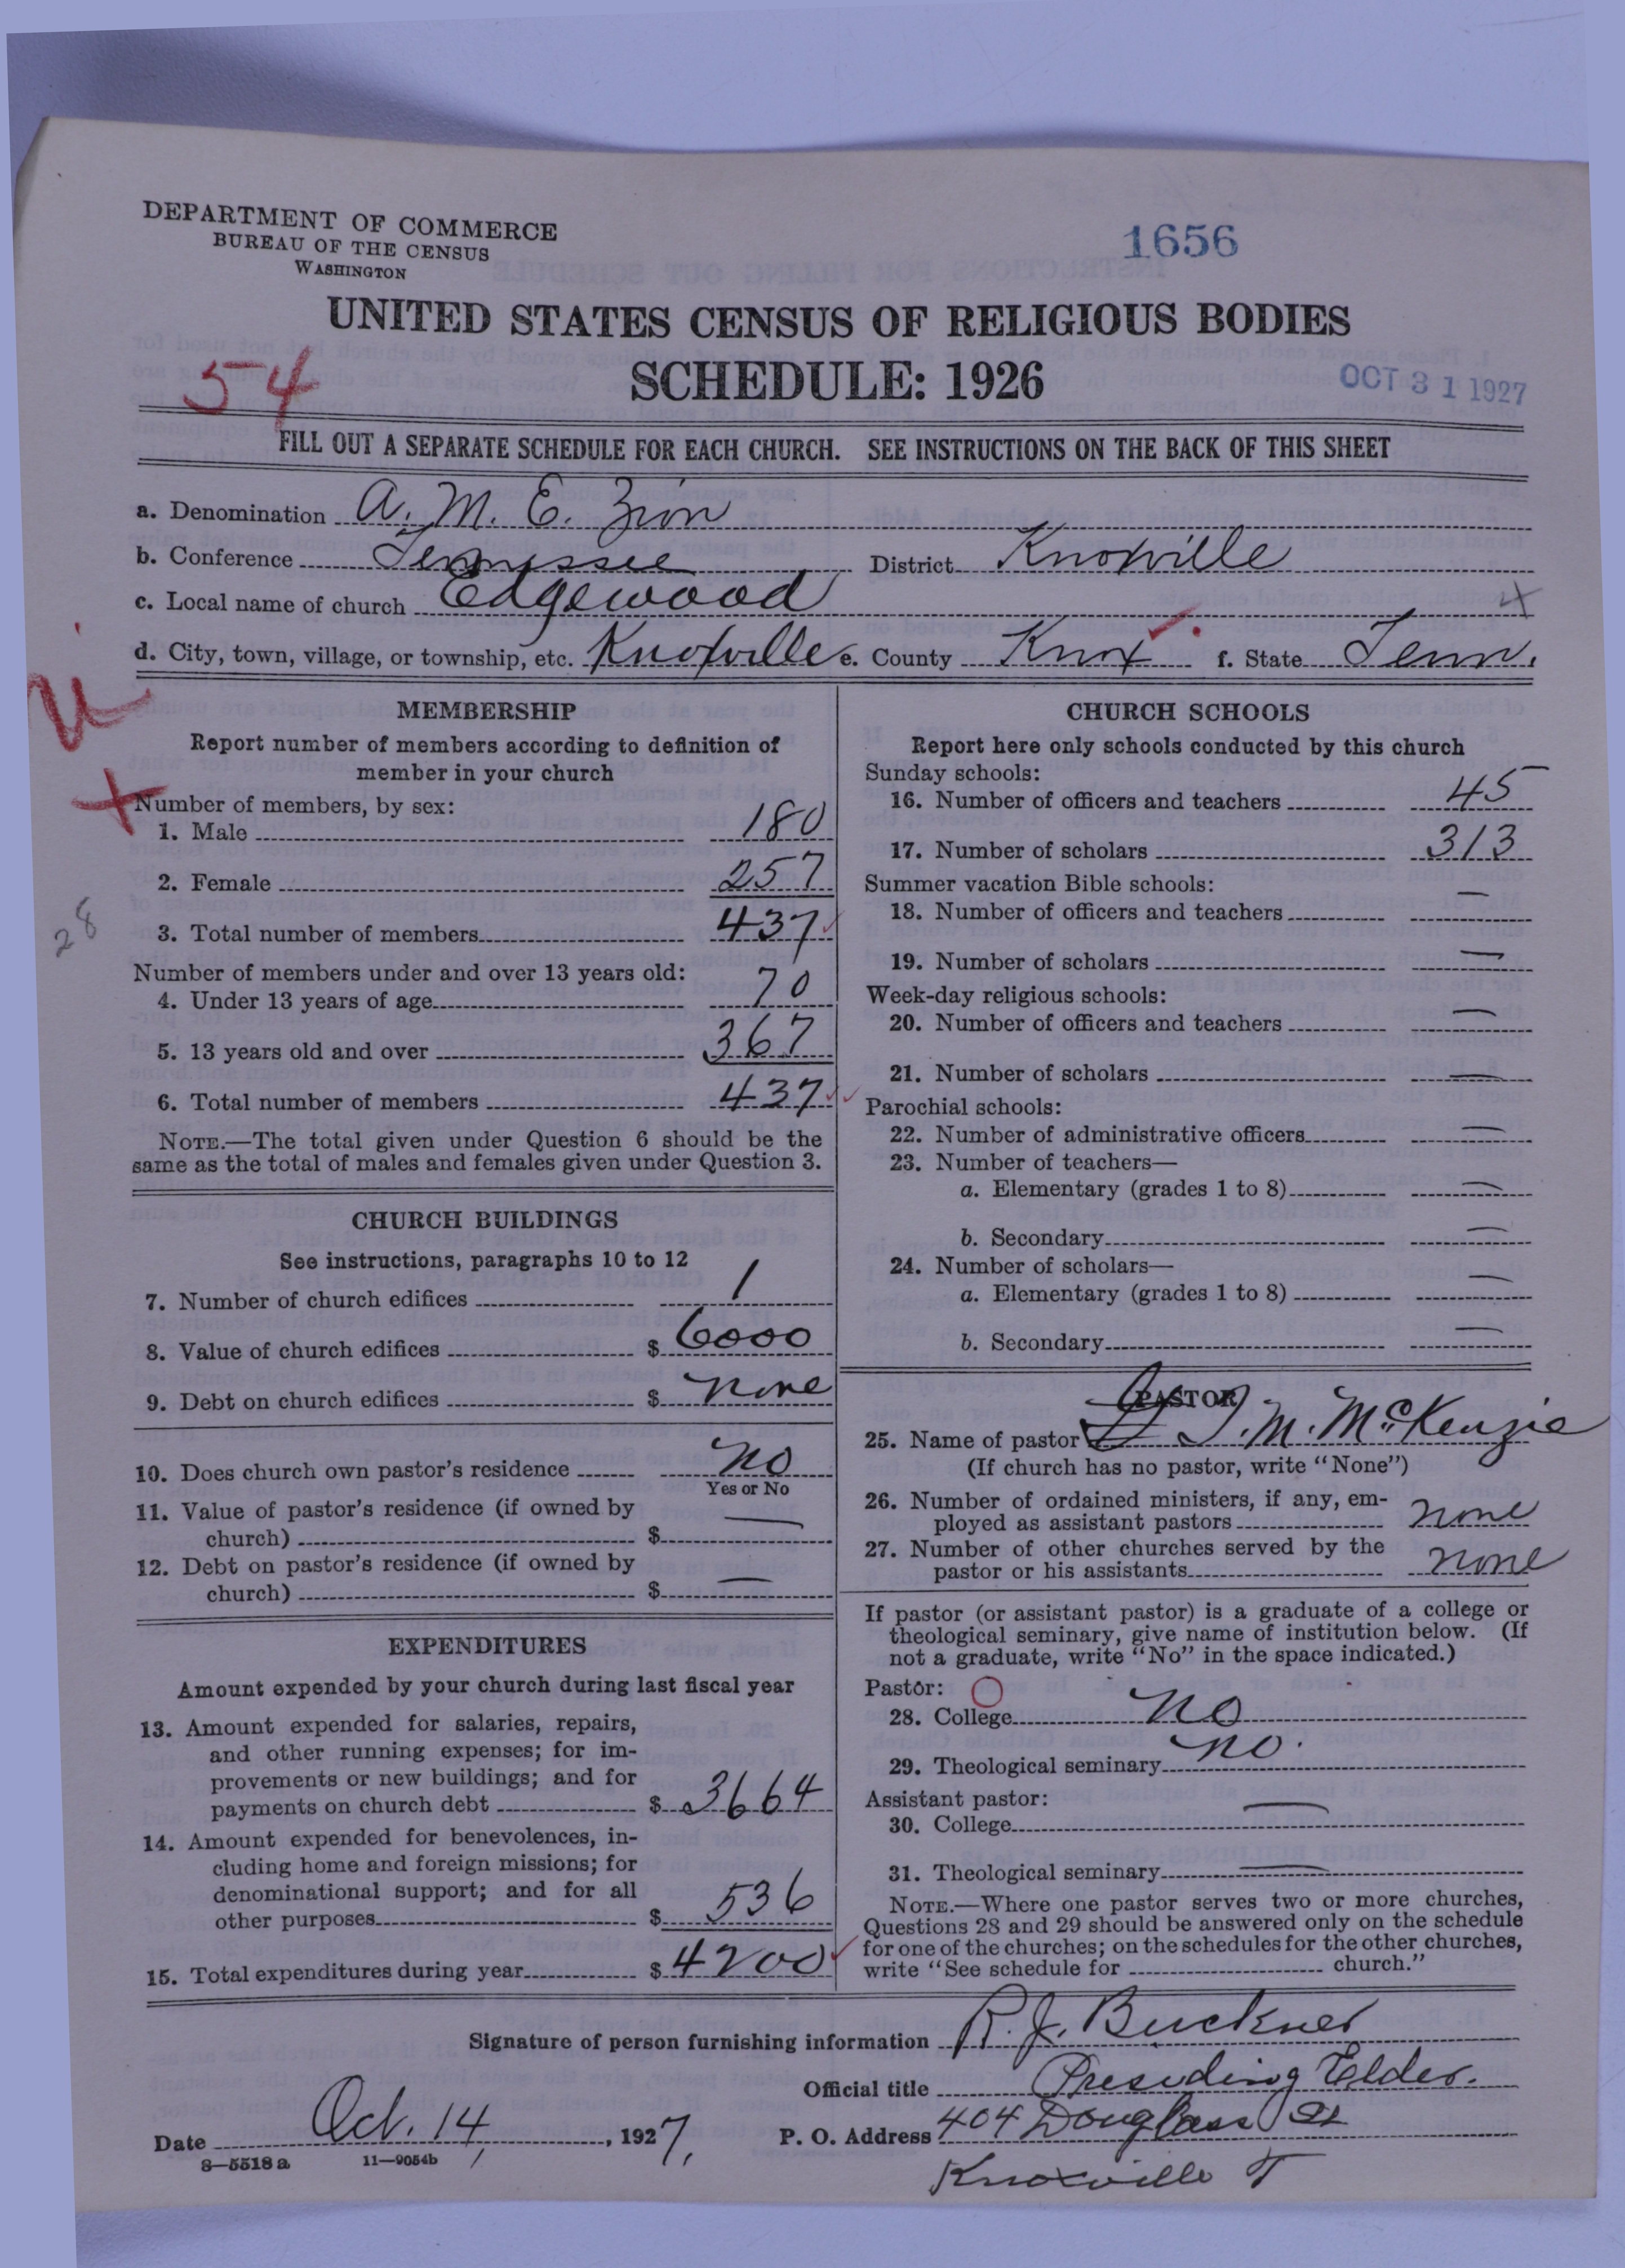 DEPARTMENT OF COMMERCE
BUREAU OF THE CENSUS
WASHINGTON
1656
UNITED STATES CENSUS OF RELIGIOUS BODIES
SCHEDULE: 1926
54
OCT 31 1927
FILL OUT A SEPARATE SCHEDULE FOR EACH CHURCH. SEE INSTRUCTIONS ON THE BACK OF THIS SHEET
a. Denomination A. M. E. Zion
b. Conference Tennessee District Knoxville
c. Local name of church Edgewood
d. City, town, village, or township, etc. Knoxville e. County Knox f. State Tenn.
MEMBERSHIP
Report number of members according to definition of
member in your church
Number of members, by sex:
1. Male 180
2. Female 257
28
3. Total number of members 437
Number of members under and over 13 years old:
4. Under 13 years of age 70
5. 13 years old and over 367
6. Total number of members 437
NOTE.—The total given under Question 6 should be the
same as the total of males and females given under Question 3.
CHURCH BUILDINGS
See instructions, paragraphs 10 to 12
7. Number of church edifices 1
8. Value of church edifices $ 6000
9. Debt on church edifices $ none
10. Does church own pastor's residence no
Yes or No
11. Value of pastor's residence (if owned by
church) $ —
12. Debt on pastor's residence (if owned by
church) $ —
EXPENDITURES
Amount expended by your church during last fiscal year
13. Amount expended for salaries, repairs,
and other running expenses; for im-
provements or new buildings; and for
payments on church debt $ 3664
14. Amount expended for benevolences, in-
cluding home and foreign missions; for
denominational support; and for all
other purposes $ 536
15. Total expenditures during year $ 4200
CHURCH SCHOOLS
Report here only schools conducted by this church
Sunday schools:
16. Number of officers and teachers 45
17. Number of scholars 313
Summer vacation Bible schools:
18. Number of officers and teachers —
19. Number of scholars —
Week-day religious schools:
20. Number of officers and teachers —
21. Number of scholars —
Parochial schools:
22. Number of administrative officers —
23. Number of teachers—
a. Elementary (grades 1 to 8) —
b. Secondary —
24. Number of scholars—
a. Elementary (grades 1 to 8) —
b. Secondary —
PASTOR
25. Name of pastor J. M. McKenzie
(If church has no pastor, write "None")
26. Number of ordained ministers, if any, em-
ployed as assistant pastors none
27. Number of other churches served by the
pastor or his assistants none
If pastor (or assistant pastor) is a graduate of a college or
theological seminary, give name of institution below. (If
not a graduate, write "No" in the space indicated.)
Pastor:
28. College no
29. Theological seminary no.
Assistant pastor:
30. College —
31. Theological seminary —
NOTE.—Where one pastor serves two or more churches,
Questions 28 and 29 should be answered only on the schedule
for one of the churches; on the schedules for the other churches,
write "See schedule for church."
Signature of person furnishing information R. J. Buckner
Official title Presiding Elder.
Date Oct. 14, 1927, P. O. Address 404 Douglass St
8—5518a 11—9054b
Knoxville T